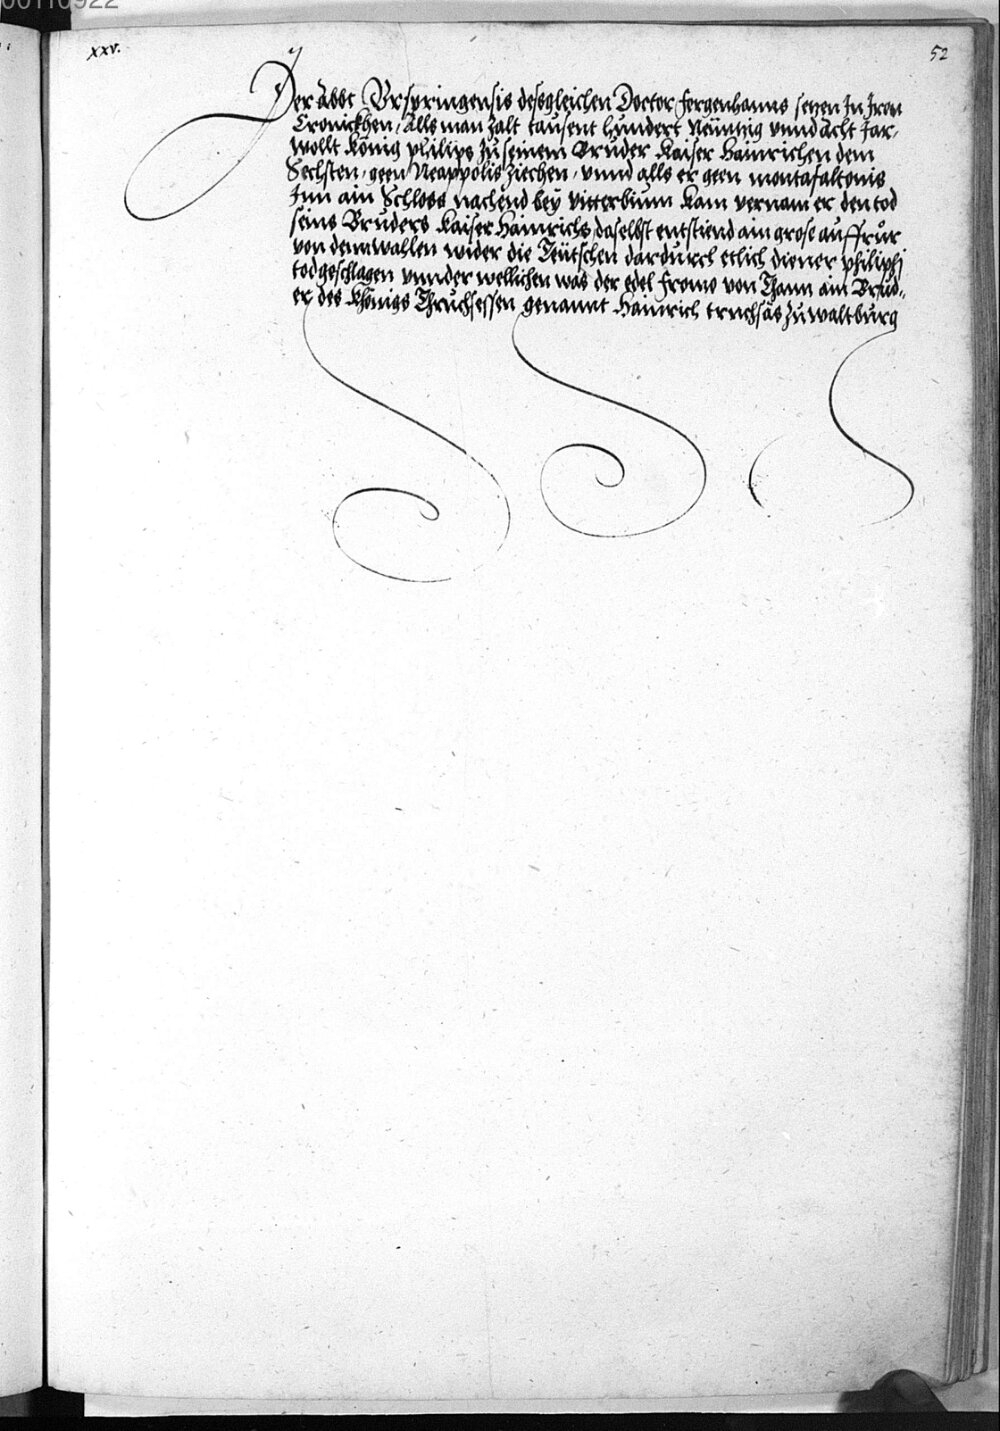 00110922
xxv.
52
Der Abbt Vrspringensis desgleichen Doctor fergenhanns setzen In Jren
Cronickhen, Alls man zalt tausent hundert Neüntzig vnnd Acht Jar,
wollt König philips zu seinem Bruder Kaiser Hainrichen dem
Sechsten, geen Neappolis ziechen, vnnd alls er geen montafaltonis
Jnn ain Schloss nachend bey vitterbium kam vernam er den tod
seins Bruders Kaiser Hainrichs daselbst entstiend ain grose auffrur
von denn wallen wider die Teütschen dardurch etlich diener philiphj
todgeschlagen vnnder wellichen was der edel fromo von Thann ain Brud,,
er des Khönigs Thruchsessen genannt Hainrich truchsäs zu waltburg